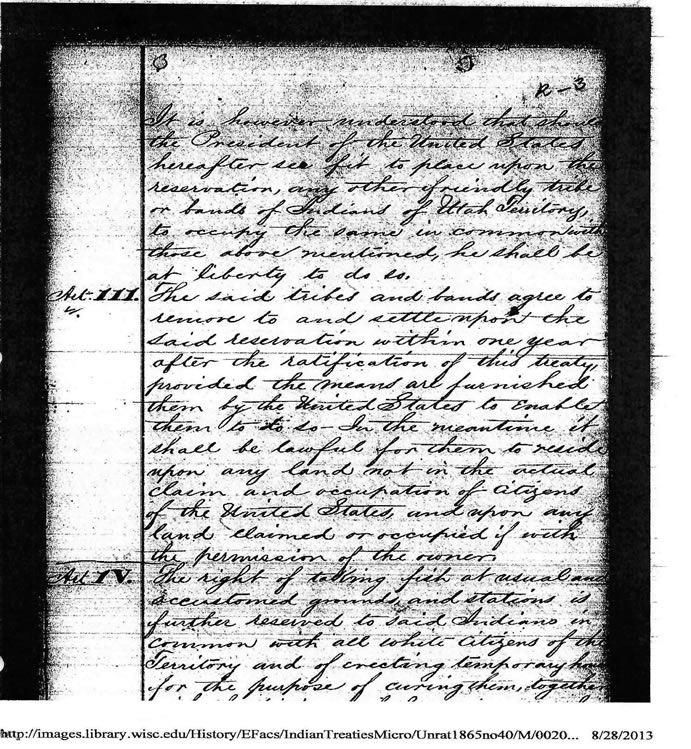 R-3
It is however understood that should
the President of the United States
hereafter see fit to place upon the
reservation, any other friendly tribe
or bands of Indians of Utah Territory,
to occupy the same in common with
those above mentioned, he shall be
at liberty to do so.
Art. III. The said tribes and bands agree to
remove to and settle upon the
said reservation within one year
after the ratification of this treaty,
provided the means are furnished
them by the United States to enable
them to do so - In the meantime it
shall be lawful for them to reside
upon any land not in the actual
claim and occupation of Citizens
of the United States, and upon any
land claimed or occupied if with
the permission of the owner.
Art IV. The right of taking fish at usual and
accustomed grounds and stations is
further reserved to said Indians in
common with all white Citizens of the
Territory and of erecting temporary
for the purpose of curing them, together
http://images.library.wisc.edu/History/EFacs/IndianTreatiesMicro/Unrat1865no40/M/0020... 8/28/2013